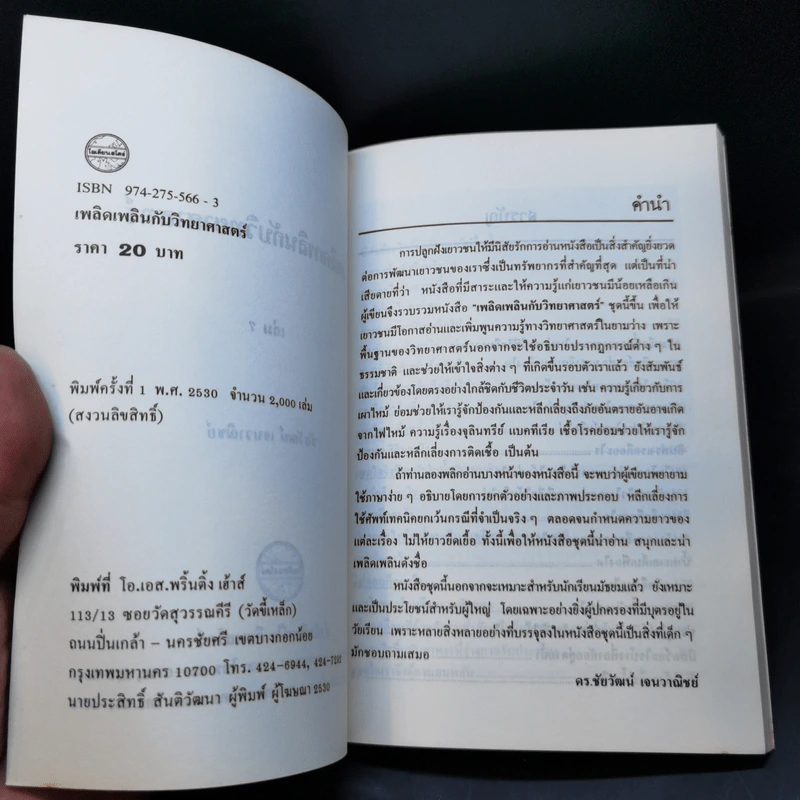 โอเดียนสโตร์
ISBN 974-275-566 - 3
เพลิดเพลินกับวิทยาศาสตร์
ราคา 20 บาท
พิมพ์ครั้งที่ 1 พ.ศ. 2530 จำนวน 2,000 เล่ม
(สงวนลิขสิทธิ์)
พิมพ์ที่ โอ.เอส.พริ้นติ้ง เฮ้าส์
113/13 ซอยวัดสุวรรณคีรี (วัดขี้เหล็ก)
ถนนปิ่นเกล้า - นครชัยศรี เขตบางกอกน้อย
กรุงเทพมหานคร 10700 โทร. 424-6944, 424-7292
นายประสิทธิ์ สันติวัฒนา ผู้พิมพ์ ผู้โฆษณา 2530
คำนำ
การปลูกฝังเยาวชนให้มีนิสัยรักการอ่านหนังสือเป็นสิ่งสำคัญยิ่งยวด
ต่อการพัฒนาเยาวชนของเราซึ่งเป็นทรัพยากรที่สำคัญที่สุด แต่เป็นที่น่า
เสียดายที่ว่า หนังสือที่มีสาระและให้ความรู้แก่เยาวชนมีน้อยเหลือเกิน
ผู้เขียนจึงรวบรวมหนังสือ "เพลิดเพลินกับวิทยาศาสตร์" ชุดนี้ขึ้น เพื่อให้
เยาวชนมีโอกาสอ่านและเพิ่มพูนความรู้ทางวิทยาศาสตร์ในยามว่าง เพราะ
พื้นฐานของวิทยาศาสตร์นอกจากจะใช้อธิบายปรากฏการณ์ต่าง ๆ ใน
ธรรมชาติ และช่วยให้เข้าใจสิ่งต่าง ๆ ที่เกิดขึ้นรอบตัวเราแล้ว ยังสัมพันธ์
และเกี่ยวข้องโดยตรงอย่างใกล้ชิดกับชีวิตประจำวัน เช่น ความรู้เกี่ยวกับการ
เผาไหม้ ย่อมช่วยให้เรารู้จักป้องกันและหลีกเลี่ยงถึงภัยอันตรายอันอาจเกิด
จากไฟไหม้ ความรู้เรื่องจุลินทรีย์ แบคทีเรีย เชื้อโรคย่อมช่วยให้เรารู้จัก
ป้องกันและหลีกเลี่ยงการติดเชื้อ เป็นต้น
ถ้าท่านลองพลิกอ่านบางหน้าของหนังสือนี้ จะพบว่าผู้เขียนพยายาม
ใช้ภาษาง่าย ๆ อธิบายโดยการยกตัวอย่างและภาพประกอบ หลีกเลี่ยงการ
ใช้ศัพท์เทคนิคยกเว้นกรณีที่จำเป็นจริง ๆ ตลอดจนกำหนดความยาวของ
แต่ละเรื่อง ไม่ให้ยาวยืดเยื้อ ทั้งนี้เพื่อให้หนังสือชุดนี้น่าอ่าน สนุกและน่า
เพลิดเพลินดังชื่อ
หนังสือชุดนี้นอกจากจะเหมาะสำหรับนักเรียนมัธยมแล้ว ยังเหมาะ
และเป็นประโยชน์สำหรับผู้ใหญ่ โดยเฉพาะอย่างยิ่งผู้ปกครองที่มีบุตรอยู่ใน
วัยเรียน เพราะหลายสิ่งหลายอย่างที่บรรจุลงในหนังสือชุดนี้เป็นสิ่งที่เด็ก ๆ
มักชอบถามเสมอ
ดร.ชัยวัฒน์ เจนวาณิชย์